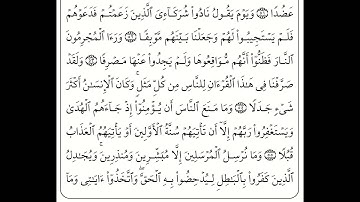 عَضُدًا ۝٥١ وَيَوْمَ يَقُولُ نَادُوا۟ شُرَكَآءِىَ ٱلَّذِينَ زَعَمْتُمْ فَدَعَوْهُمْ
فَلَمْ يَسْتَجِيبُوا۟ لَهُمْ وَجَعَلْنَا بَيْنَهُم مَّوْبِقًا ۝٥٢ وَرَءَا ٱلْمُجْرِمُونَ
ٱلنَّارَ فَظَنُّوٓا۟ أَنَّهُم مُّوَاقِعُوهَا وَلَمْ يَجِدُوا۟ عَنْهَا مَصْرِفًا ۝٥٣ وَلَقَدْ
صَرَّفْنَا فِى هَٰذَا ٱلْقُرْءَانِ لِلنَّاسِ مِن كُلِّ مَثَلٍ ۚ وَكَانَ ٱلْإِنسَٰنُ أَكْثَرَ
شَىْءٍ جَدَلًا ۝٥٤ وَمَا مَنَعَ ٱلنَّاسَ أَن يُؤْمِنُوٓا۟ إِذْ جَآءَهُمُ ٱلْهُدَىٰ
وَيَسْتَغْفِرُوا۟ رَبَّهُمْ إِلَّآ أَن تَأْتِيَهُمْ سُنَّةُ ٱلْأَوَّلِينَ أَوْ يَأْتِيَهُمُ ٱلْعَذَابُ
قُبُلًا ۝٥٥ وَمَا نُرْسِلُ ٱلْمُرْسَلِينَ إِلَّا مُبَشِّرِينَ وَمُنذِرِينَ ۚ وَيُجَٰدِلُ
ٱلَّذِينَ كَفَرُوا۟ بِٱلْبَٰطِلِ لِيُدْحِضُوا۟ بِهِ ٱلْحَقَّ ۖ وَٱتَّخَذُوٓا۟ ءَايَٰتِى وَمَآ